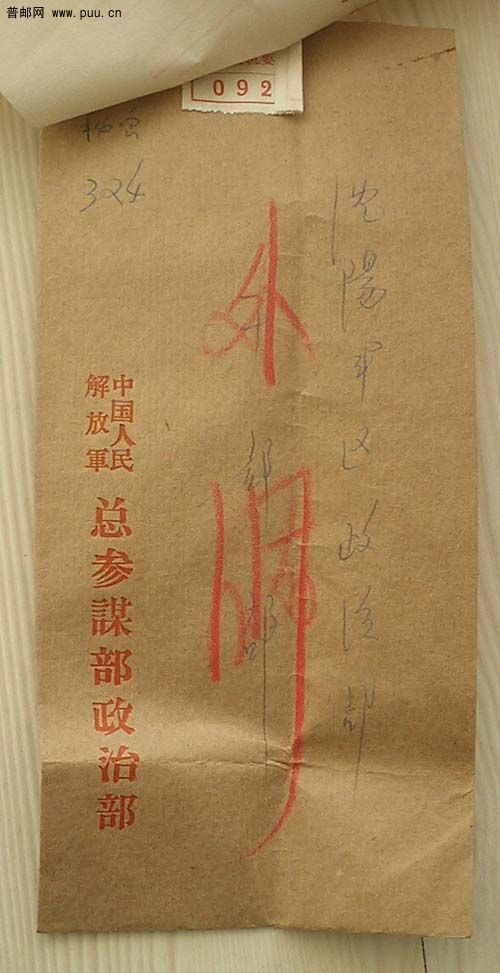 普邮网 www.puu.cn
092
秘字
324
沈陽军区政治部
干部部
中国人民
解放軍
总参謀部政治部